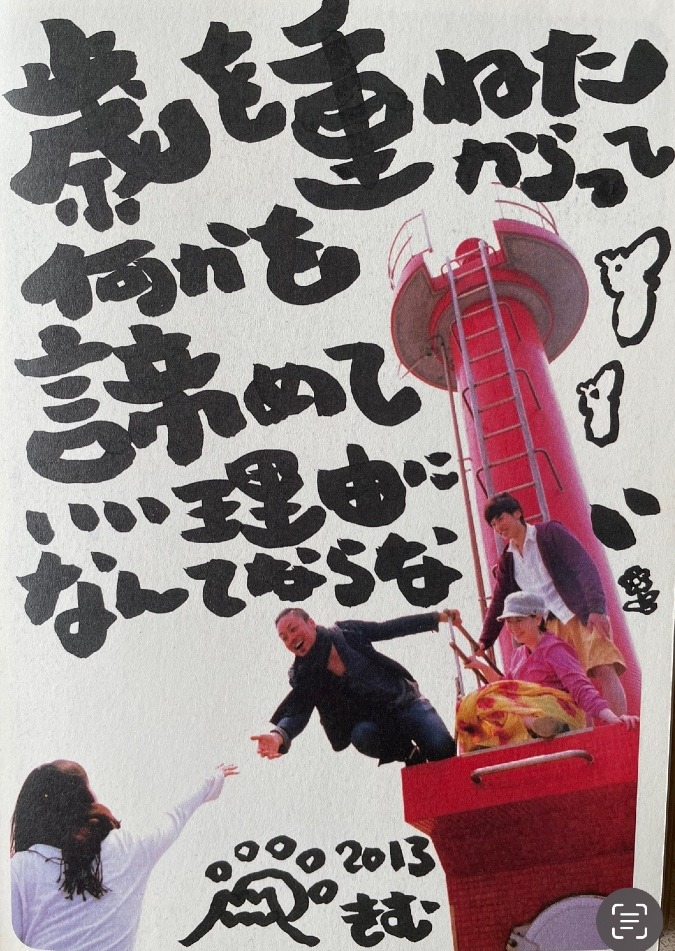 歳を重ねた
からって
何かも
諦めて
いい理由に
なんてならな
い
2013
きむ